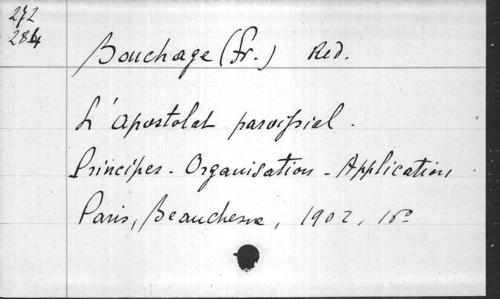 272
284
Bouchage (Fr.) Red.
L'apostolat paroissial.
Principes - Organisation - Application
Paris, Beauchesne, 1902, 18º